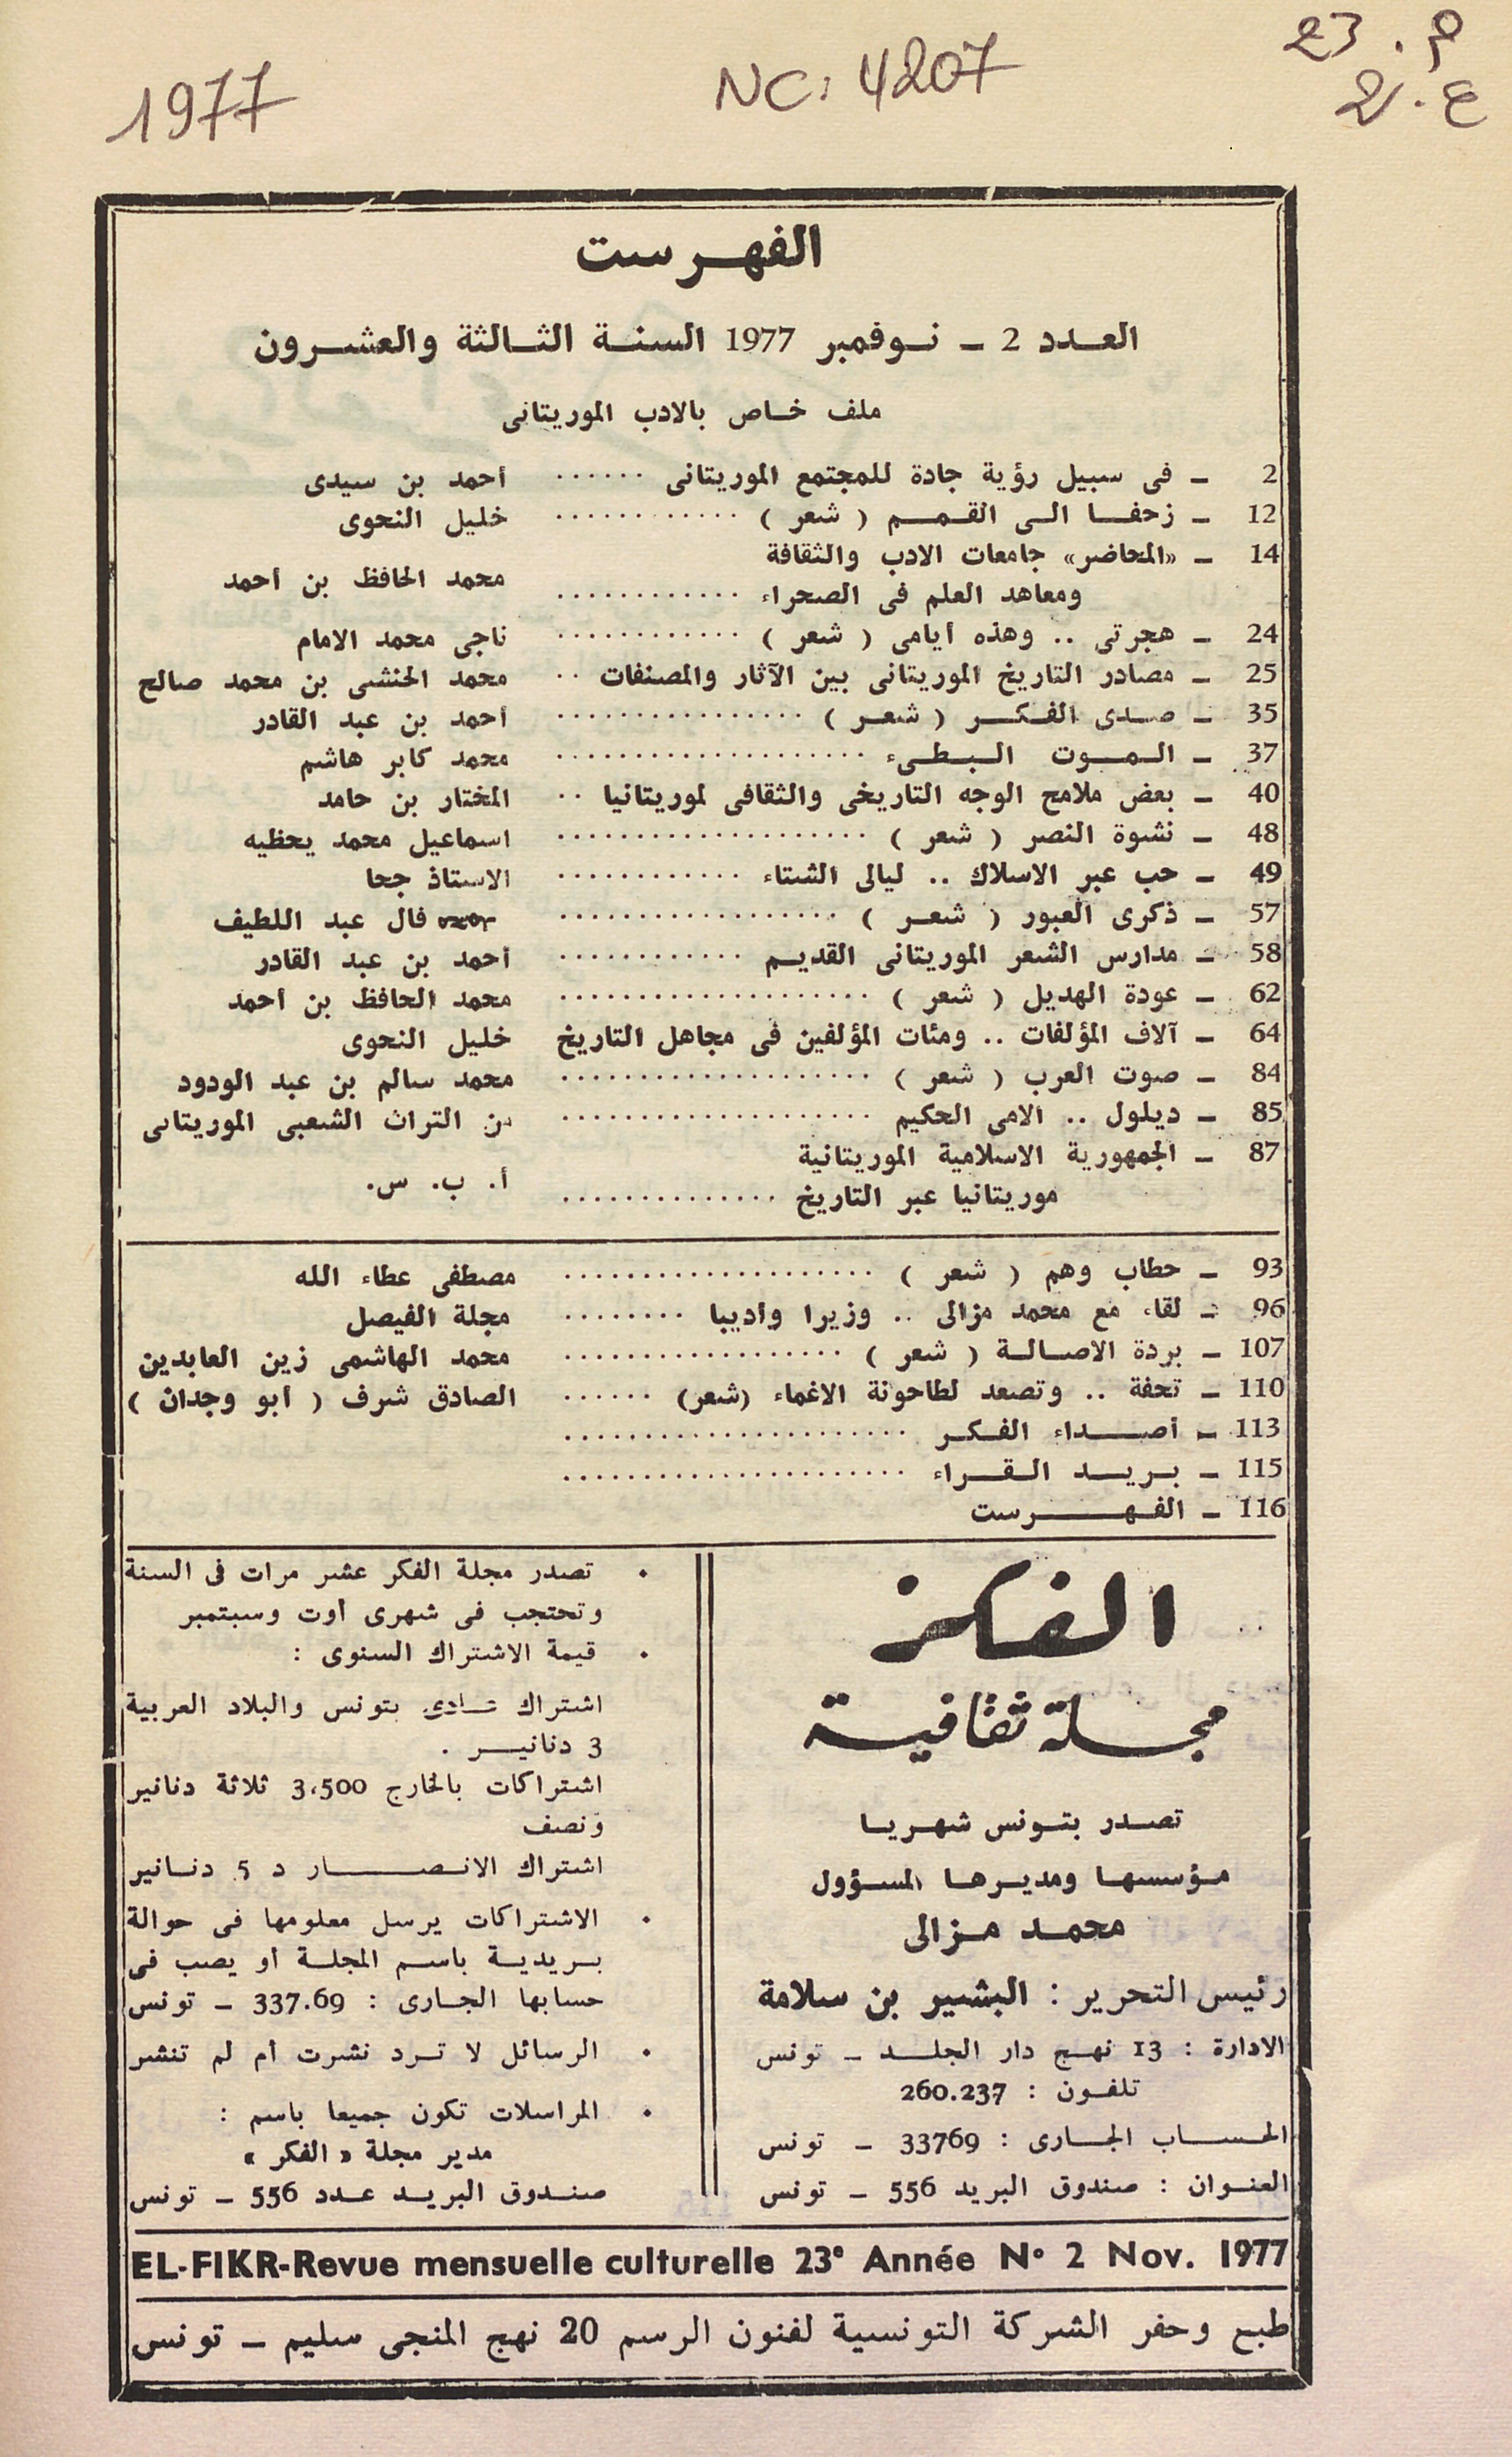 23 . م
2 . ع
NC: 4207
1977
الفهـرست
العـدد 2 ـ نـوفمبر 1977 السنـة الثـالثة والعشـرون
ملف خـاص بالادب الموريتانى
2 ـ فى سبيل رؤية جادة للمجتمع الموريتانى ...... أحمد بن سيدى
12 ـ زحفـا الـى القـمـم ( شعر ) ............ خليل النحوى
14 ـ «المحاضر» جامعات الادب والثقافة
ومعاهد العلم فى الصحراء ............ محمد الحافظ بن أحمد
24 ـ هجرتى .. وهذه أيامى ( شعر ) ............ ناجى محمد الامام
25 ـ مصادر التاريخ الموريتانى بين الآثار والمصنفات .. محمد الحنشى بن محمد صالح
35 ـ صـدى الفـكـر ( شعـر ) ................ أحمد بن عبد القادر
37 ـ الـمـوت الـبـطـىء .................... محمد كابر هاشم
40 ـ بعض ملامح الوجه التاريخى والثقافى لموريتانيا .. المختار بن حامد
48 ـ نشوة النصر ( شعر ) .................... اسماعيل محمد يحظيه
49 ـ حب عبر الاسلاك .. ليالى الشتاء ............ الاستاذ جحا
57 ـ ذكرى العبور ( شعـر ) .................. فال عبد اللطيف
58 ـ مدارس الشعر الموريتانى القديـم ............ أحمد بن عبد القادر
62 ـ عودة الهديل ( شعر ) .................... محمد الحافظ بن أحمد
64 ـ آلاف المؤلفات .. ومئات المؤلفين فى مجاهل التاريخ خليل النحوى
84 ـ صوت العرب ( شعر ) .................... محمد سالم بن عبد الودود
85 ـ ديلول .. الامى الحكيم .................... من التراث الشعبى الموريتانى
87 ـ الجمهورية الاسلامية الموريتانية
موريتانيا عبر التاريخ .............. أ. ب. س.
93 ـ حطاب وهم ( شعر ) .................... مصطفى عطاء الله
96 ـ لقاء مع محمد مزالى .. وزيرا واديبا ........ مجلة الفيصل
107 ـ بردة الاصـالـة ( شعر ) .................. محمد الهاشمى زين العابدين
110 ـ تحفة .. وتصعد لطاحونة الاغماء (شعر) ...... الصادق شرف ( أبو وجدان )
113 ـ أصـــداء الفـكـر ......................
115 ـ بـريـد الـقـراء ......................
116 ـ الفـهــــرست
الفكر
مجـلة ثقافيـة
تصـدر بتـونس شهـريـا
مـؤسسهـا ومديـرهـا المسـؤول
محمـد مـزالى
رئيس التحرير : البشير بن سلامة
الادارة : 13 نهـج دار الجلـد ـ تونس
تلفـون : 260.237
الحسـاب الجـارى : 33769 ـ تونس
العنـوان : صندوق البريد 556 ـ تونس
. تصدر مجلة الفكر عشر مرات فى السنة
وتحتجب فى شهرى أوت وسبتمبر
. قيمة الاشتراك السنوى :
اشتراك عـادى بتونس والبلاد العربية
3 دنانيـر .
اشتراكات بالخارج 3،500 ثلاثة دنانير
ونصف
اشتراك الانـصـــار د 5 دنـانير
. الاشتراكات يرسل معلومها فى حوالة
بـريديـة باسـم المجلـة أو يصب فى
حسابها الجـارى : 337.69 ـ تونس
. الرسائل لا تـرد نشرت أم لم تنشر
. المراسلات تكون جميعا باسم :
مدير مجلة « الفكر »
صنـدوق البريـد عـدد 556 ـ تونس
EL-FIKR-Revue mensuelle culturelle 23° Année N° 2 Nov. 1977
طبع وحفر الشركة التونسية لفنون الرسم 20 نهج المنجى سليم ـ تونس